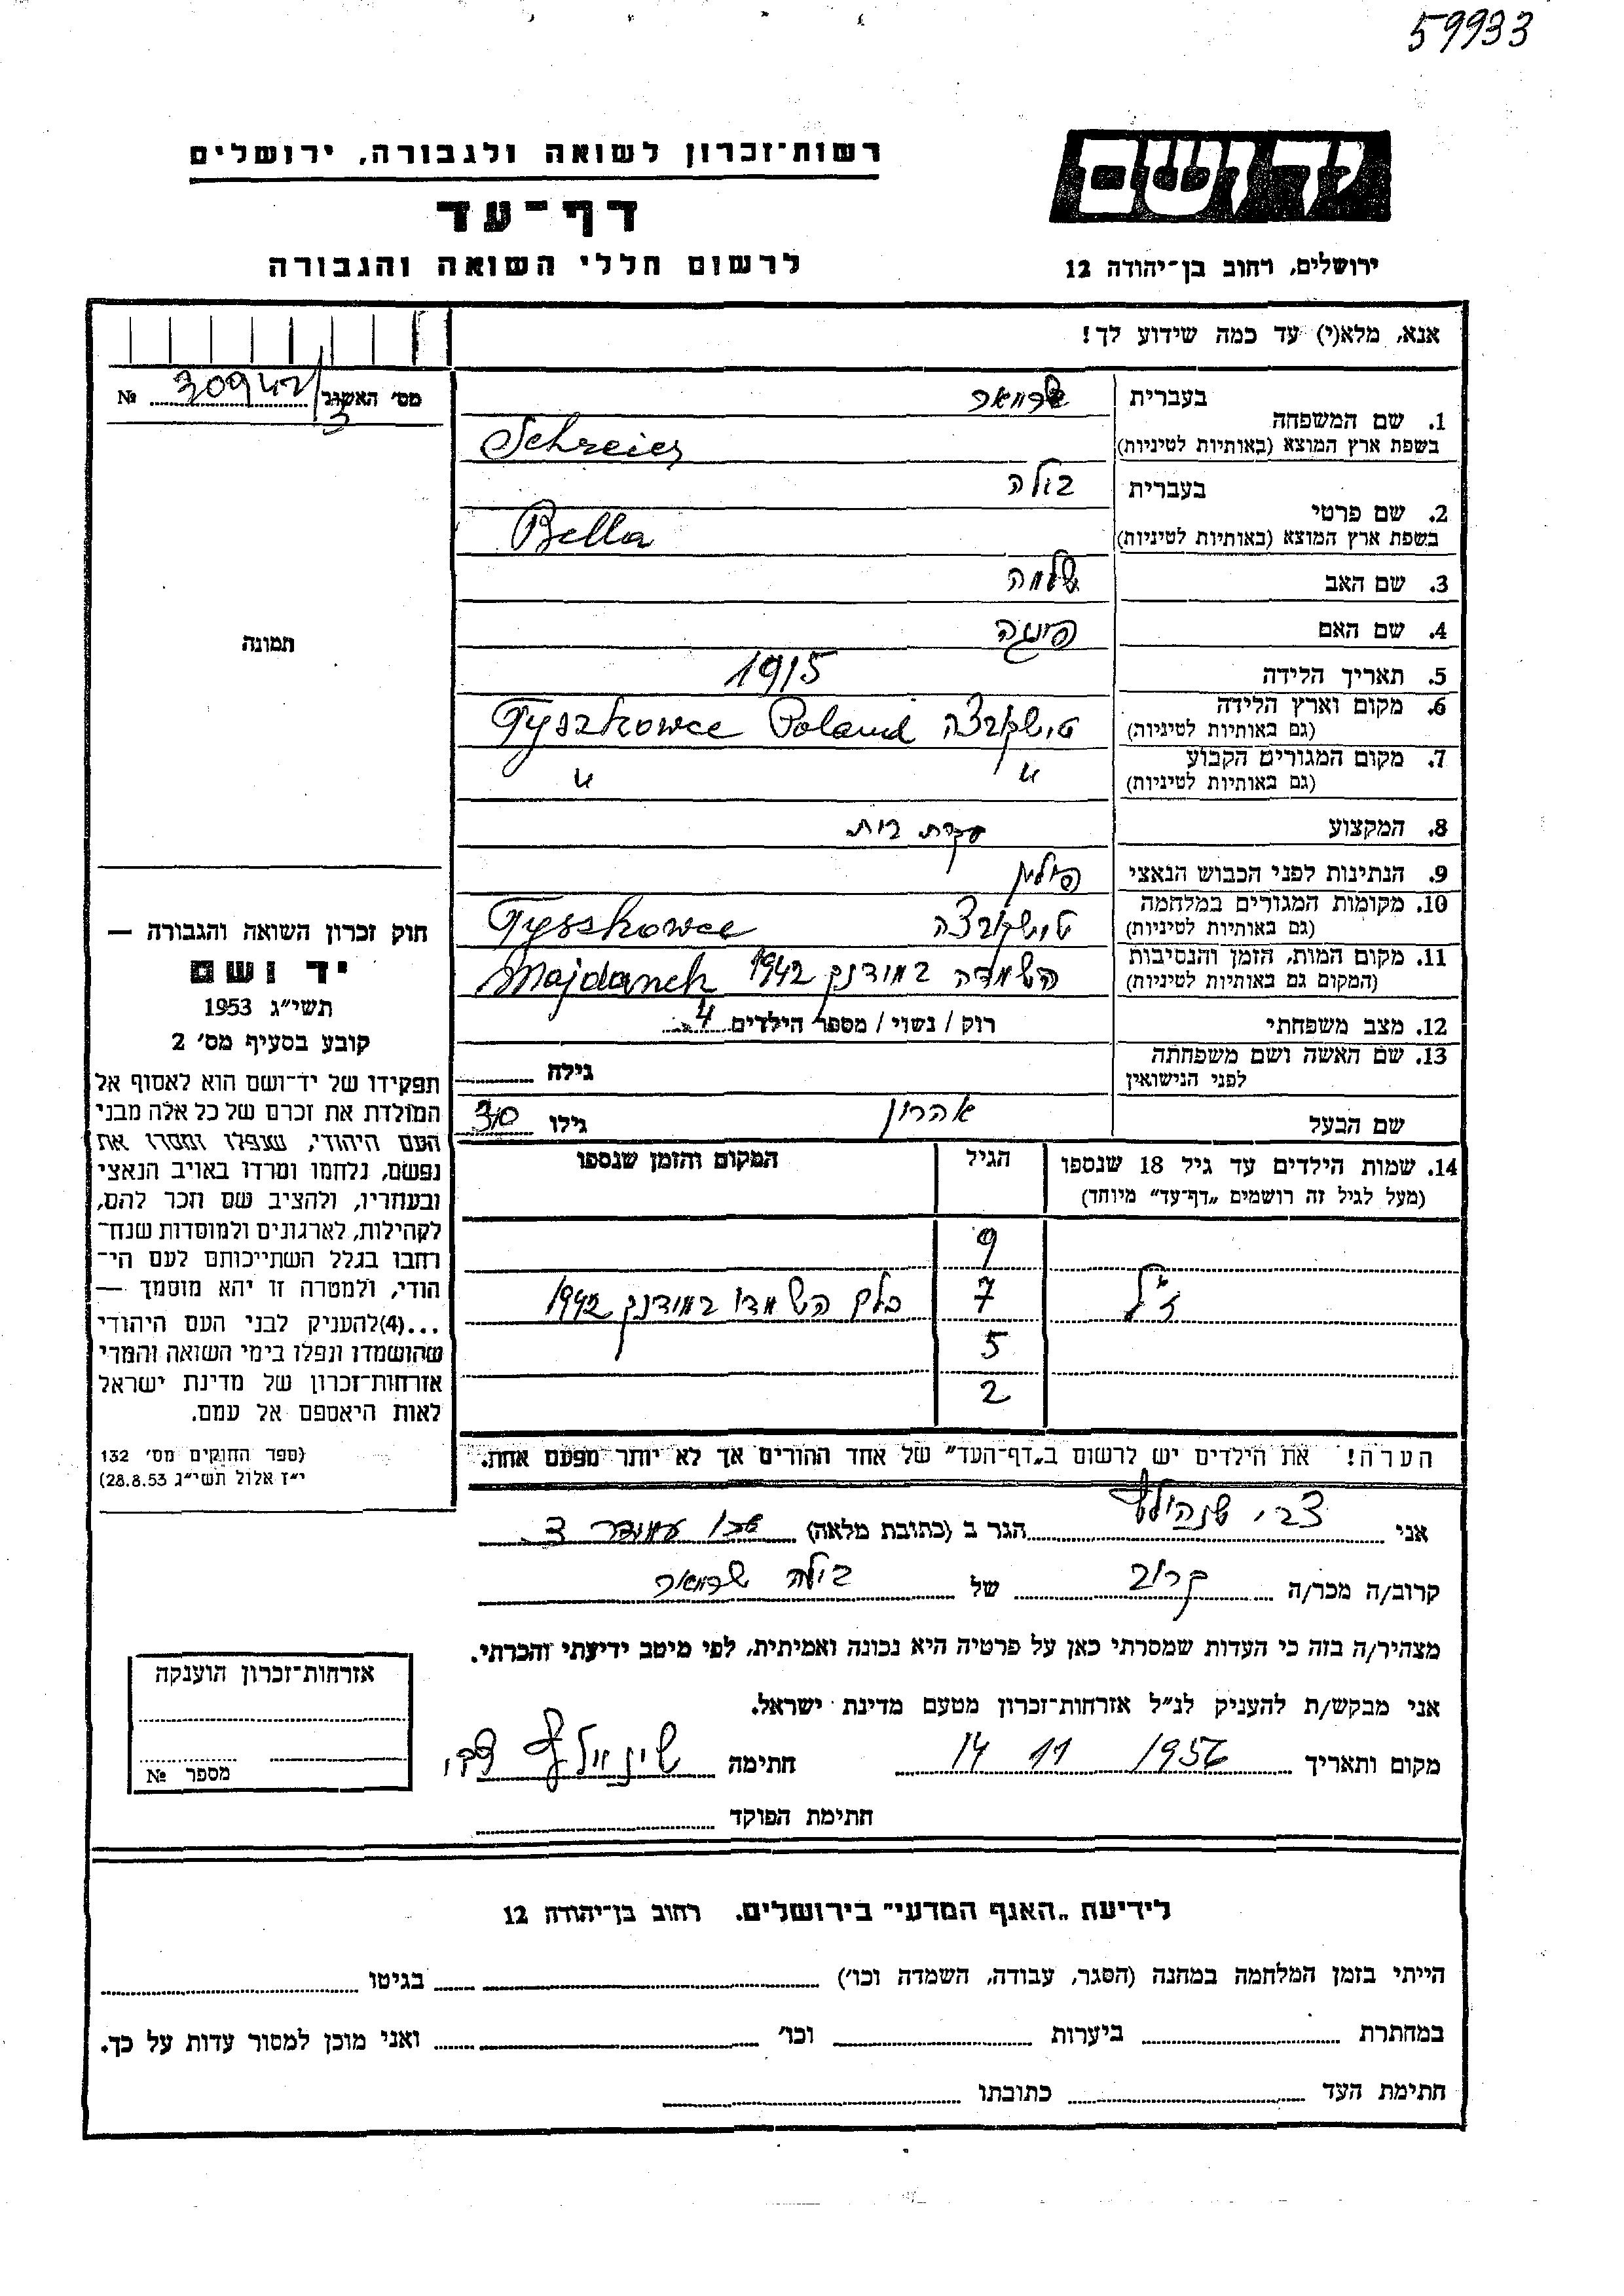 59933
יד ושם
ירושלים, רחוב בן־יהודה 12
רשות־זכרון לשואה ולגבורה, ירושלים
דף־עד
לרשום חללי השואה והגבורה
אנא, מלא(י) עד כמה שידוע לך!
מס׳ האשנב 30942/3 №
תמונה
חוק זכרון השואה והגבורה —
יד ושם
תשי״ג 1953
קובע בסעיף מס׳ 2
תפקידו של יד־ושם הוא לאסוף אל
המולדת את זכרם של כל אלה מבני
העם היהודי, שנפלו ומסרו את
נפשם, נלחמו ומרדו באויב הנאצי
ובעוזריו, ולהציב שם וזכר להם,
לקהילות, לארגונים ולמוסדות שנח־
רחבו בגלל השתייכותם לעם הי־
הודי, ולמטרה זו יהא מוסמך —
...(4)להעניק לבני העם היהודי
שהושמדו ונפלו בימי השואה והמרי
אזרחות־זכרון של מדינת ישראל
לאות היאספם אל עמם.
(ספר החוקים מס׳ 132
י״ז אלול תשי״ג 28.8.53)
1. שם המשפחה בעברית
בשפת ארץ המוצא (באותיות לטיניות) Schreier
2. שם פרטי בעברית בילה
בשפת ארץ המוצא (באותיות לטיניות) Bella
3. שם האב שלמה
4. שם האם
5. תאריך הלידה 1915
6. מקום וארץ הלידה (גם באותיות לטיניות) טישקובצה Tyszkowce Poland
7. מקום המגורים הקבוע (גם באותיות לטיניות) " "
8. המקצוע עקרת בית
9. הנתינות לפני הכבוש הנאצי פולין
10. מקומות המגורים במלחמה (גם באותיות לטיניות) טישקובצה Tysskowce
11. מקום המות, הזמן והנסיבות (המקום גם באותיות לטיניות) השמדה במידנק 1942 Majdanek
12. מצב משפחתי רוק / נשוי / מספר הילדים 4
13. שם האשה ושם משפחתה לפני הנישואין גילה
שם הבעל אהרון גילו 30
14. שמות הילדים עד גיל 18 שנספו הגיל המקום והזמן שנספו
(מעל לגיל זה רושמים „דף־עד״ מיוחד)
9
ז״ל 7 כולם השמדו במידנק 1942
5
2
הערה! את הילדים יש לרשום ב„דף־העד״ של אחד ההורים אך לא יותר מפעם אחת.
אני צבי הגר ב (כתובת מלאה)
קרוב/ה מכר/ה קרוב של בילה
מצהיר/ה בזה כי העדות שמסרתי כאן על פרטיה היא נכונה ואמיתית, לפי מיטב ידיעתי והכרתי.
אני מבקש/ת להעניק לנ״ל אזרחות־זכרון מטעם מדינת ישראל.
מקום ותאריך 14 11 1956 חתימה צבי
חתימת הפוקד
אזרחות־זכרון הוענקה
מספר №
לידיעת „האגף המדעי״ בירושלים. רחוב בן־יהודה 12
הייתי בזמן המלחמה במחנה (הסגר, עבודה, השמדה וכו׳) בגיטו
במחתרת ביערות וכו׳ ואני מוכן למסור עדות על כך.
חתימת העד כתובתו